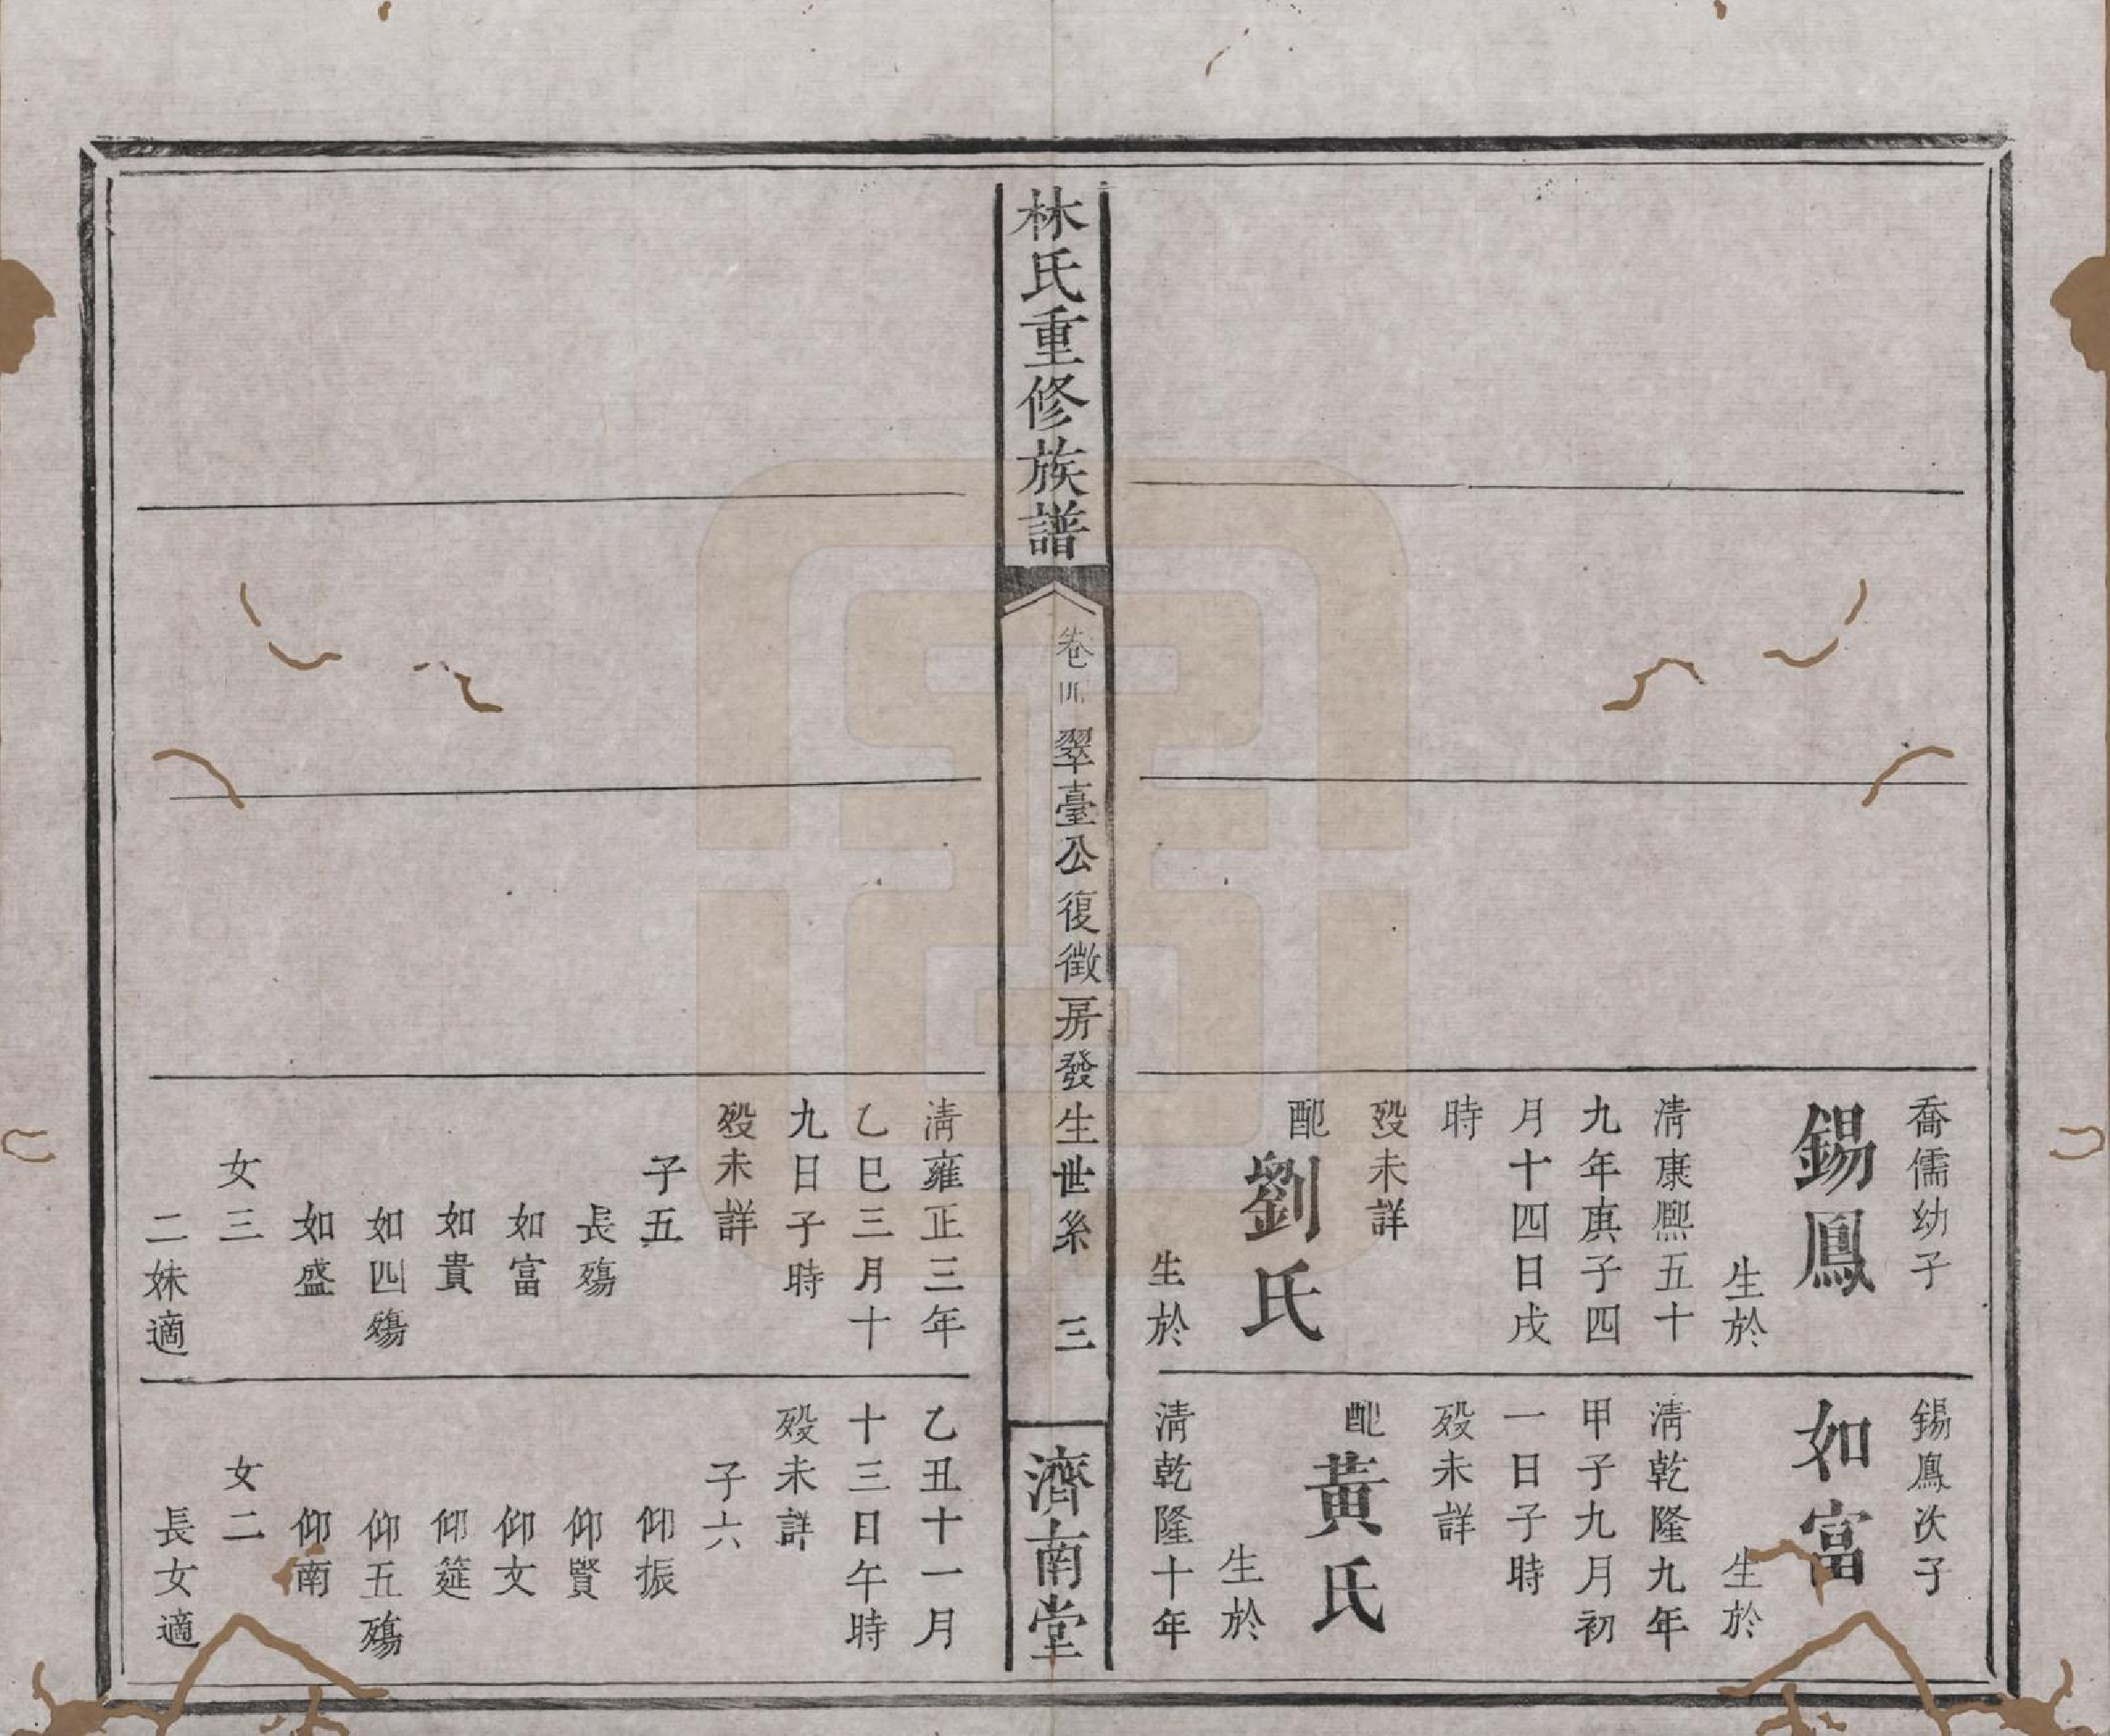 喬儒幼子
錫鳳
生於
清康熙五十
九年庚子四
月十四日戌
時
歿未詳
配劉氏
生於
錫鳳次子
如富
生於
清乾隆九年
甲子九月初
一日子時
歿未詳
配黃氏
生於
清乾隆十年
林氏重修族譜
卷四
翠臺公復徵房發生世系
三
濟南堂
清雍正三年
乙巳三月十
九日子時
歿未詳
子五
長殤
如富
如貴
如四殤
如盛
女三
二妹適
乙丑十一月
十三日午時
歿未詳
子六
仰振
仰賢
仰文
仰筵
仰五殤
仰南
女二
長女適